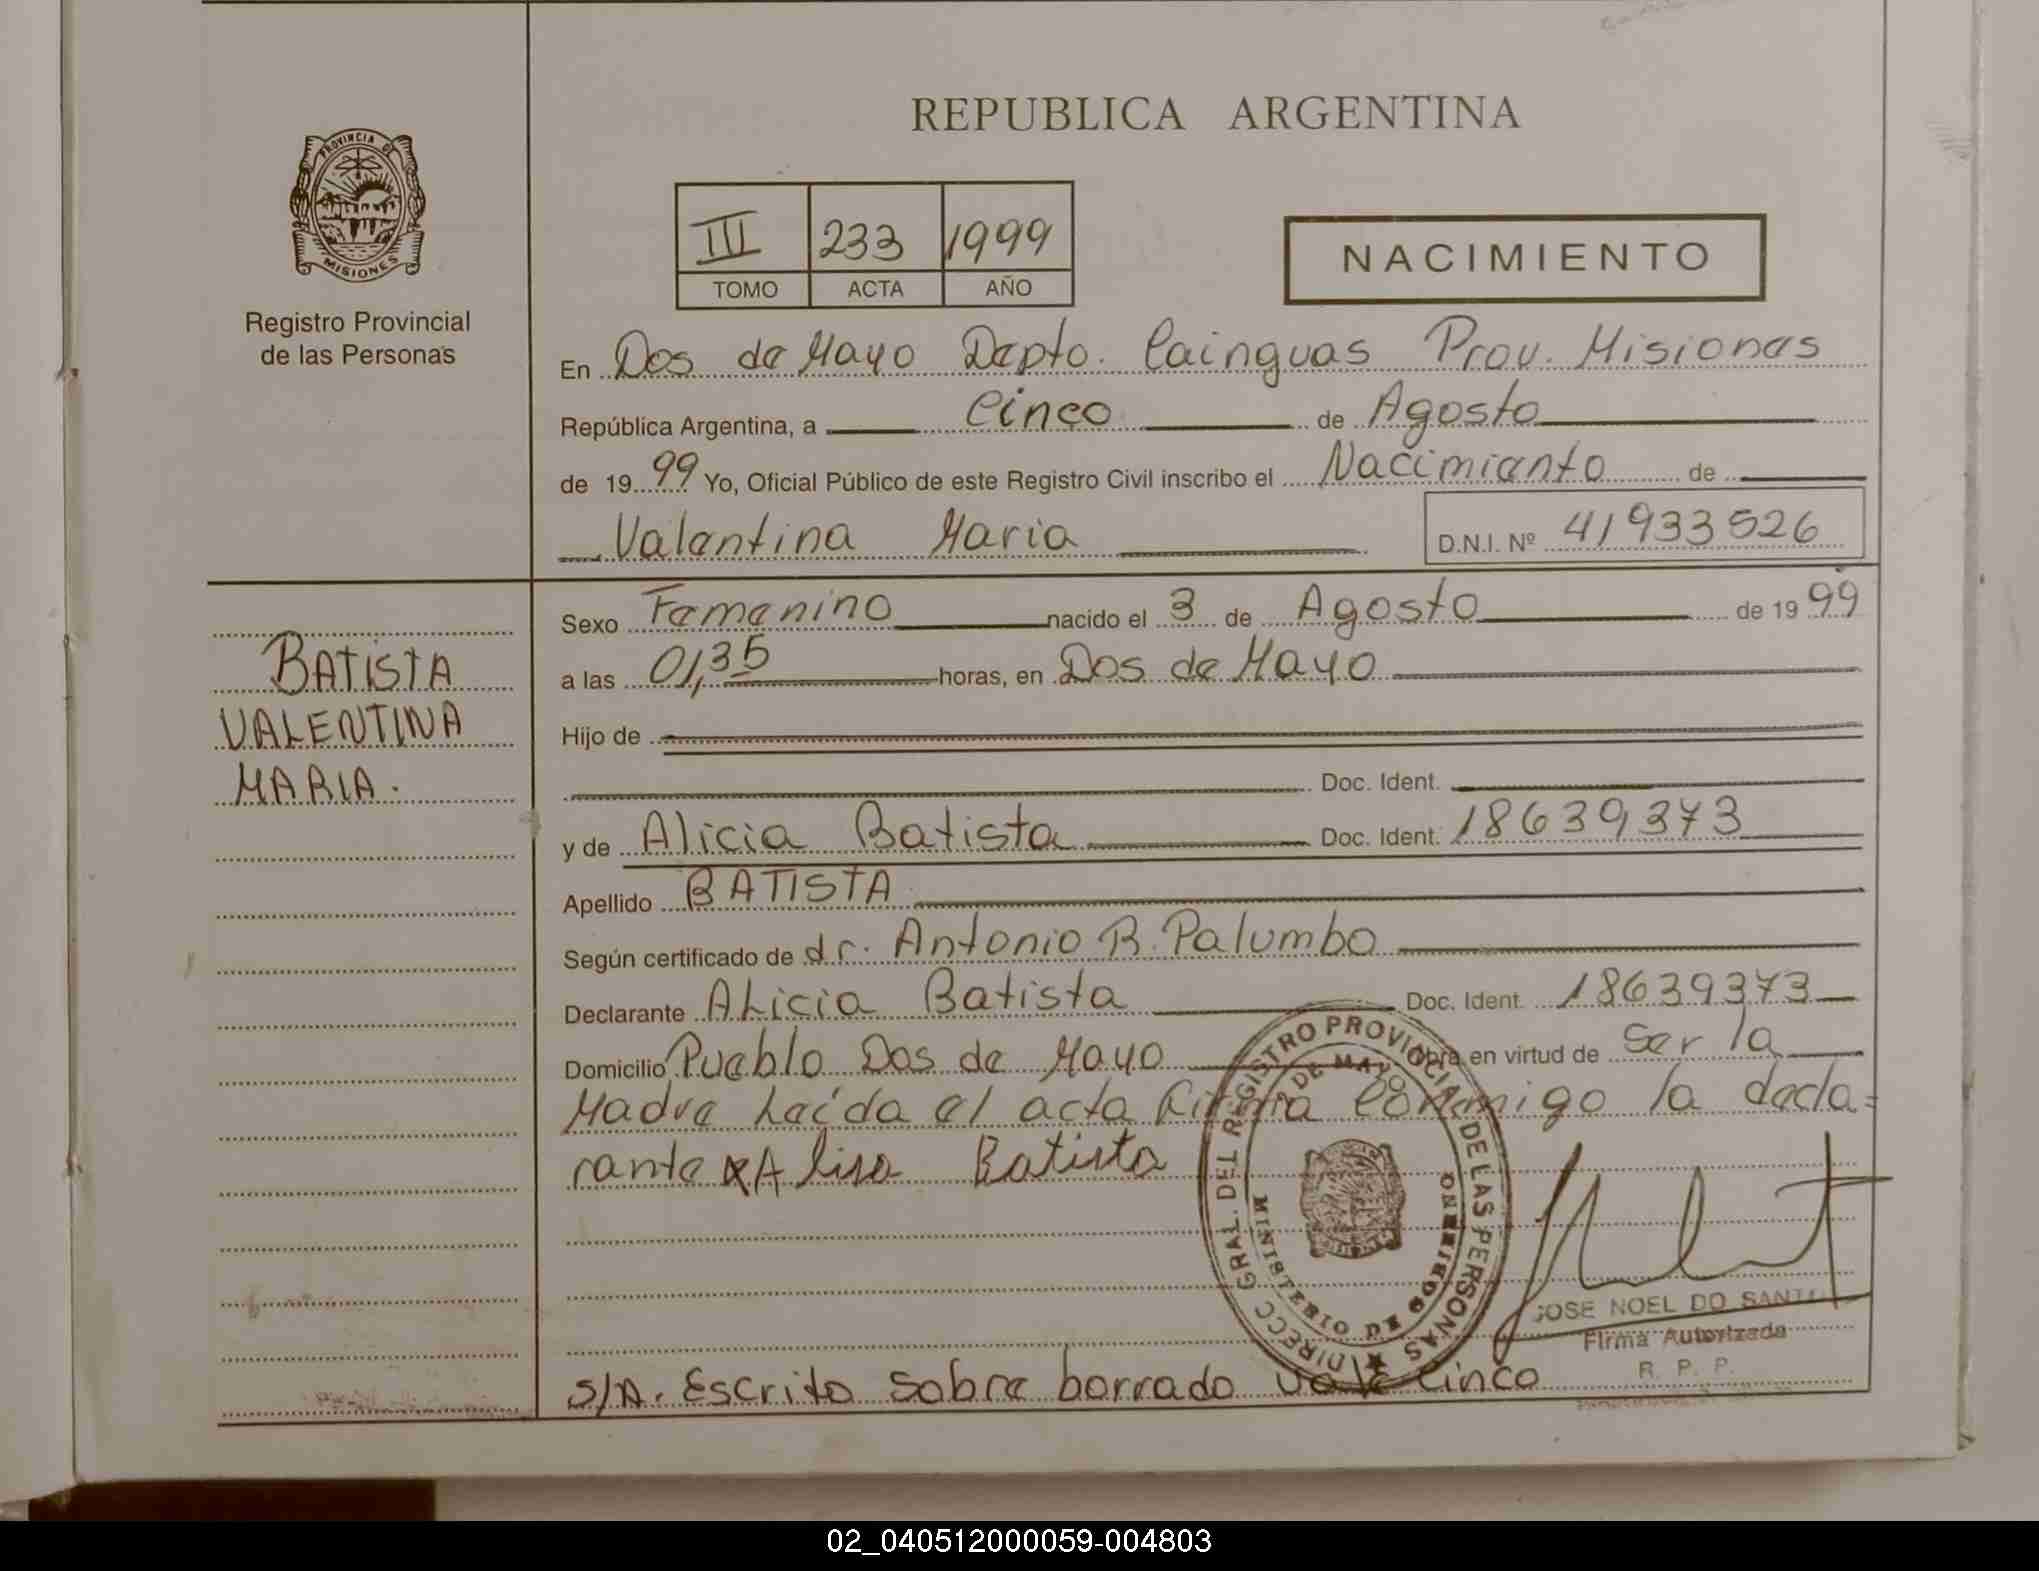 REPUBLICA ARGENTINA
PROVINCIA DE
MISIONES
Registro Provincial
de las Personas
III 233 1999
TOMO ACTA AÑO
NACIMIENTO
En Dos de Mayo Depto. Cainguas Prov. Misiones
República Argentina, a Cinco de Agosto
de 19 99 Yo, Oficial Público de este Registro Civil inscribo el Nacimiento de
Valentina Maria D.N.I. Nº 41933526
BATISTA
VALENTINA
MARIA.
Sexo Femenino nacido el 3 de Agosto de 19 99
a las 01,35 horas, en Dos de Mayo
Hijo de
Doc. Ident.
y de Alicia Batista Doc. Ident. 18639373
Apellido BATISTA
Según certificado de dr. Antonio B. Palumbo
Declarante Alicia Batista Doc. Ident. 18639373
Domicilio Pueblo Dos de Mayo Obra en virtud de Ser la
Madre Leída el acta Firma Conmigo la decla=
rante x Alisa Batista
DIRECC GRAL. DEL REGISTRO PROVINCIAL DE LAS PERSONAS
DE MAYO
MINISTERIO DE GOBIERNO
JOSE NOEL DO
Firma Autorizada
R. P. P.
S/A. Escrito sobre borrado vale Cinco
02_040512000059-004803